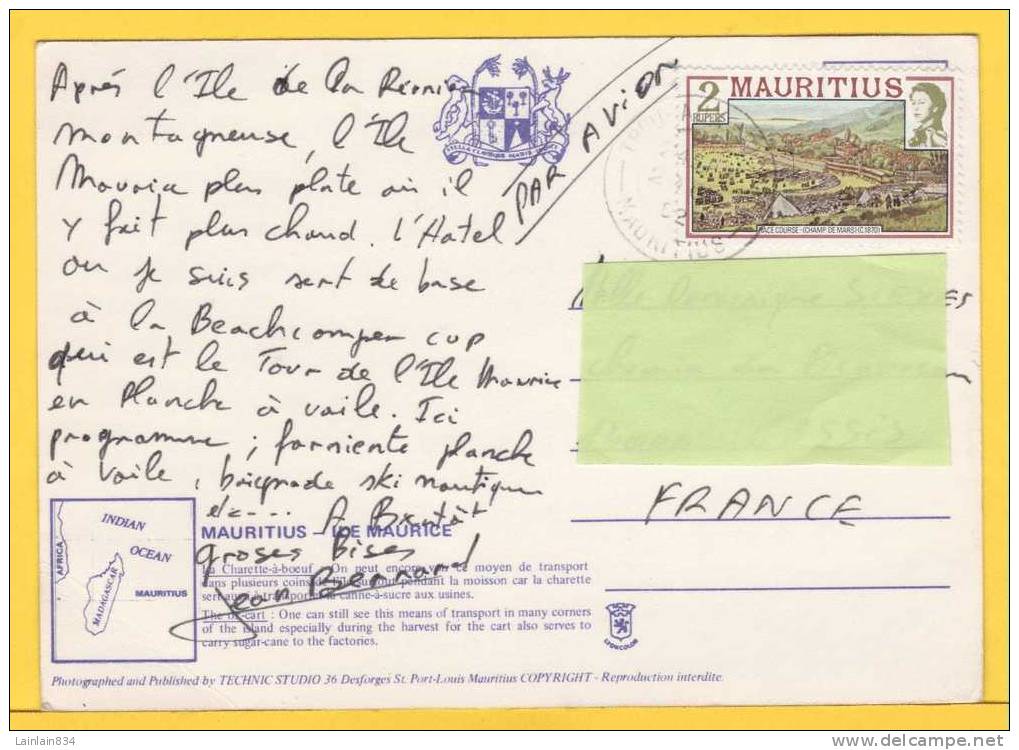 Après l'Ile de la Réunion
montagneuse, l'Ile
Maurice plus plate où il
y fait plus chaud. L'Hotel
ou je suis sert de base
à la Beachcomper cup
qui est le Tour de l'Ile Maurice
en Planche à voile. Ici
programme ; farniente planche
à voile, baignade ski nautique
etc.... A Bientôt
groses Bises
Jean Bernard
PAR AVION
2
RUPEES
MAURITIUS
RACE COURSE-(CHAMP DE MARS)(C.1870)
MAURITIUS
FRANCE
INDIAN
OCEAN
AFRICA
MADAGASCAR
MAURITIUS
MAURITIUS – ILE MAURICE
La Charette-à-boeuf : On peut encore voir ce moyen de transport
dans plusieurs coins de l'île surtout pendant la moisson car la charette
sert aussi à transporter la canne-à-sucre aux usines.
The ox-cart : One can still see this means of transport in many corners
of the island especially during the harvest for the cart also serves to
carry sugar-cane to the factories.
LYONCOLOR
Photographed and Published by TECHNIC STUDIO 36 Desforges St. Port-Louis Mauritius COPYRIGHT - Reproduction interdite.
Lainlain834
http://www.delcampe.net